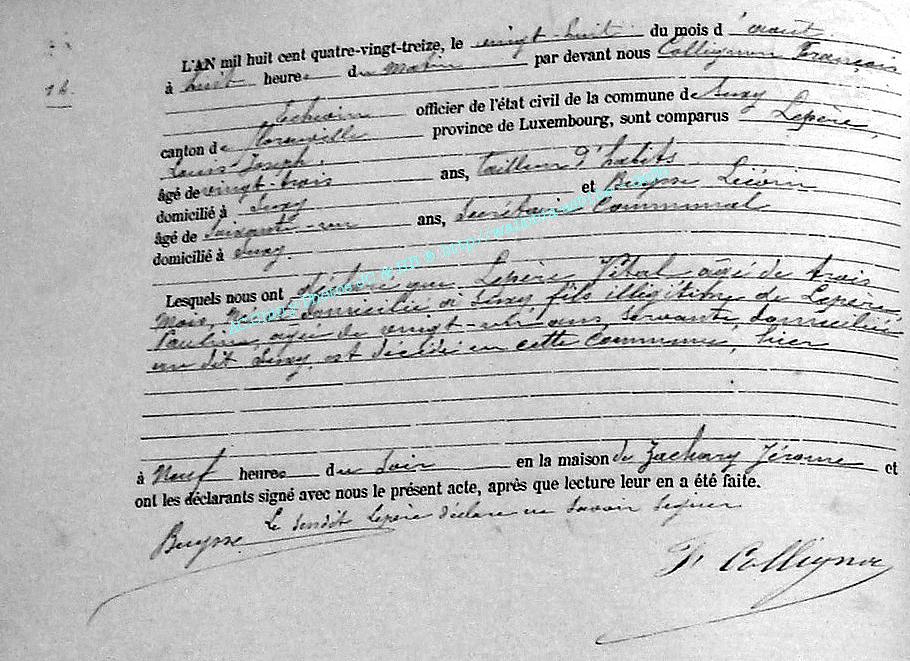 14.
L'AN mil huit cent quatre-vingt-treize, le vingt-huit du mois d'août
à huit heures du matin par devant nous Collignon François
Echevin officier de l'état civil de la commune de Suxy
canton de Florenville province de Luxembourg, sont comparus Lepère,
Louis Joseph.
âgé de vingt-trois ans, tailleur d'habits
domicilié à Suxy et Buysse Liévin
âgé de soixante-un ans, Secrétaire Communal
domicilié à Suxy.
Lesquels nous ont déclaré que Lepère Vital âgé de trois
mois, domicilié à Suxy fils illégitime de Lepère
Pauline, âgée de vingt- ans, servante, domiciliée
au dit Suxy, est décédé en cette Commune, hier
à Neuf heures du soir en la maison de Zachary Jérome et
ont les déclarants signé avec nous le présent acte, après que lecture leur en a été faite.
Le susdit Lepère déclare ne savoir signer
Buysse
F. Collignon